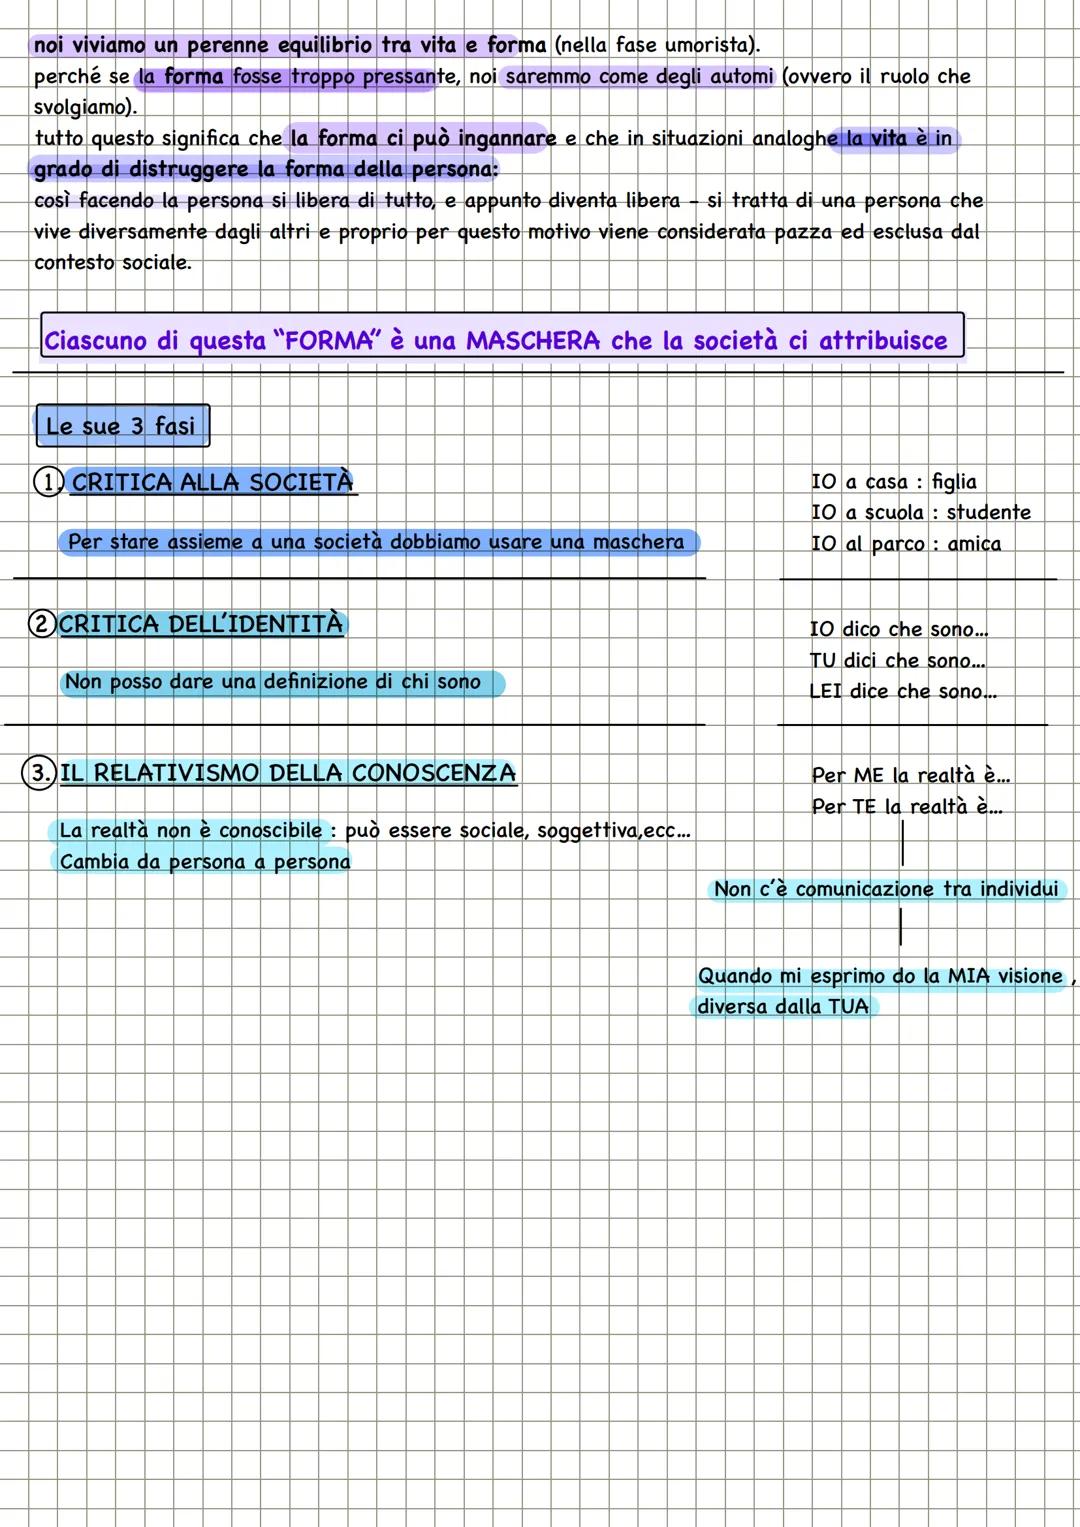 noi viviamo un perenne equilibrio tra vita e forma (nella fase umorista).
perché se la forma fosse troppo pressante, noi saremmo come degli automi (ovvero il ruolo che
svolgiamo).
tutto questo significa che la forma ci può ingannare e che in situazioni analoghe la vita è in
grado di distruggere la forma della persona:
così facendo la persona si libera di tutto, e appunto diventa libera - si tratta di una persona che
vive diversamente dagli altri e proprio per questo motivo viene considerata pazza ed esclusa dal
contesto sociale.
Ciascuno di questa “FORMA” è una MASCHERA che la società ci attribuisce
Le sue 3 fasi
1. CRITICA ALLA SOCIETÀ
Per stare assieme a una società dobbiamo usare una maschera
IO a casa : figlia
IO a scuola : studente
IO al parco : amica
2 CRITICA DELL'IDENTITÀ
Non posso dare una definizione di chi sono
IO dico che sono...
TU dici che sono...
LEI dice che sono...
3. IL RELATIVISMO DELLA CONOSCENZA
La realtà non è conoscibile : può essere sociale, soggettiva,ecc...
Cambia da persona a persona
Per ME la realtà è...
Per TE la realtà è...
Non c'è comunicazione tra individui
Quando mi esprimo do la MIA visione ,
diversa dalla TUA